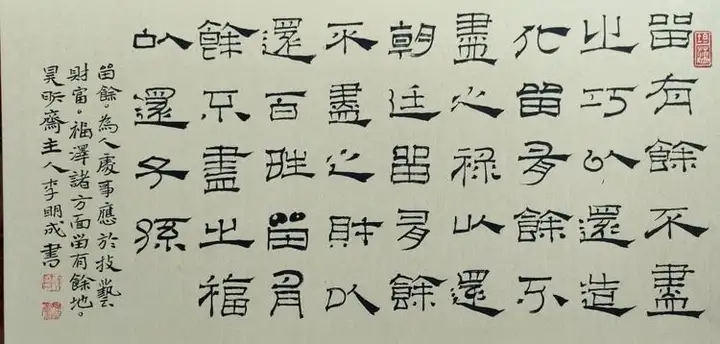 留有餘不盡
之巧以還造
化留有餘不
盡之祿以還
朝廷留有餘
不盡之財以
還百姓留有
餘不盡之福
以還子孫
留餘。為人處事應於技藝
財富。福澤諸方面留有餘地。
昊昕齋主人李明成書